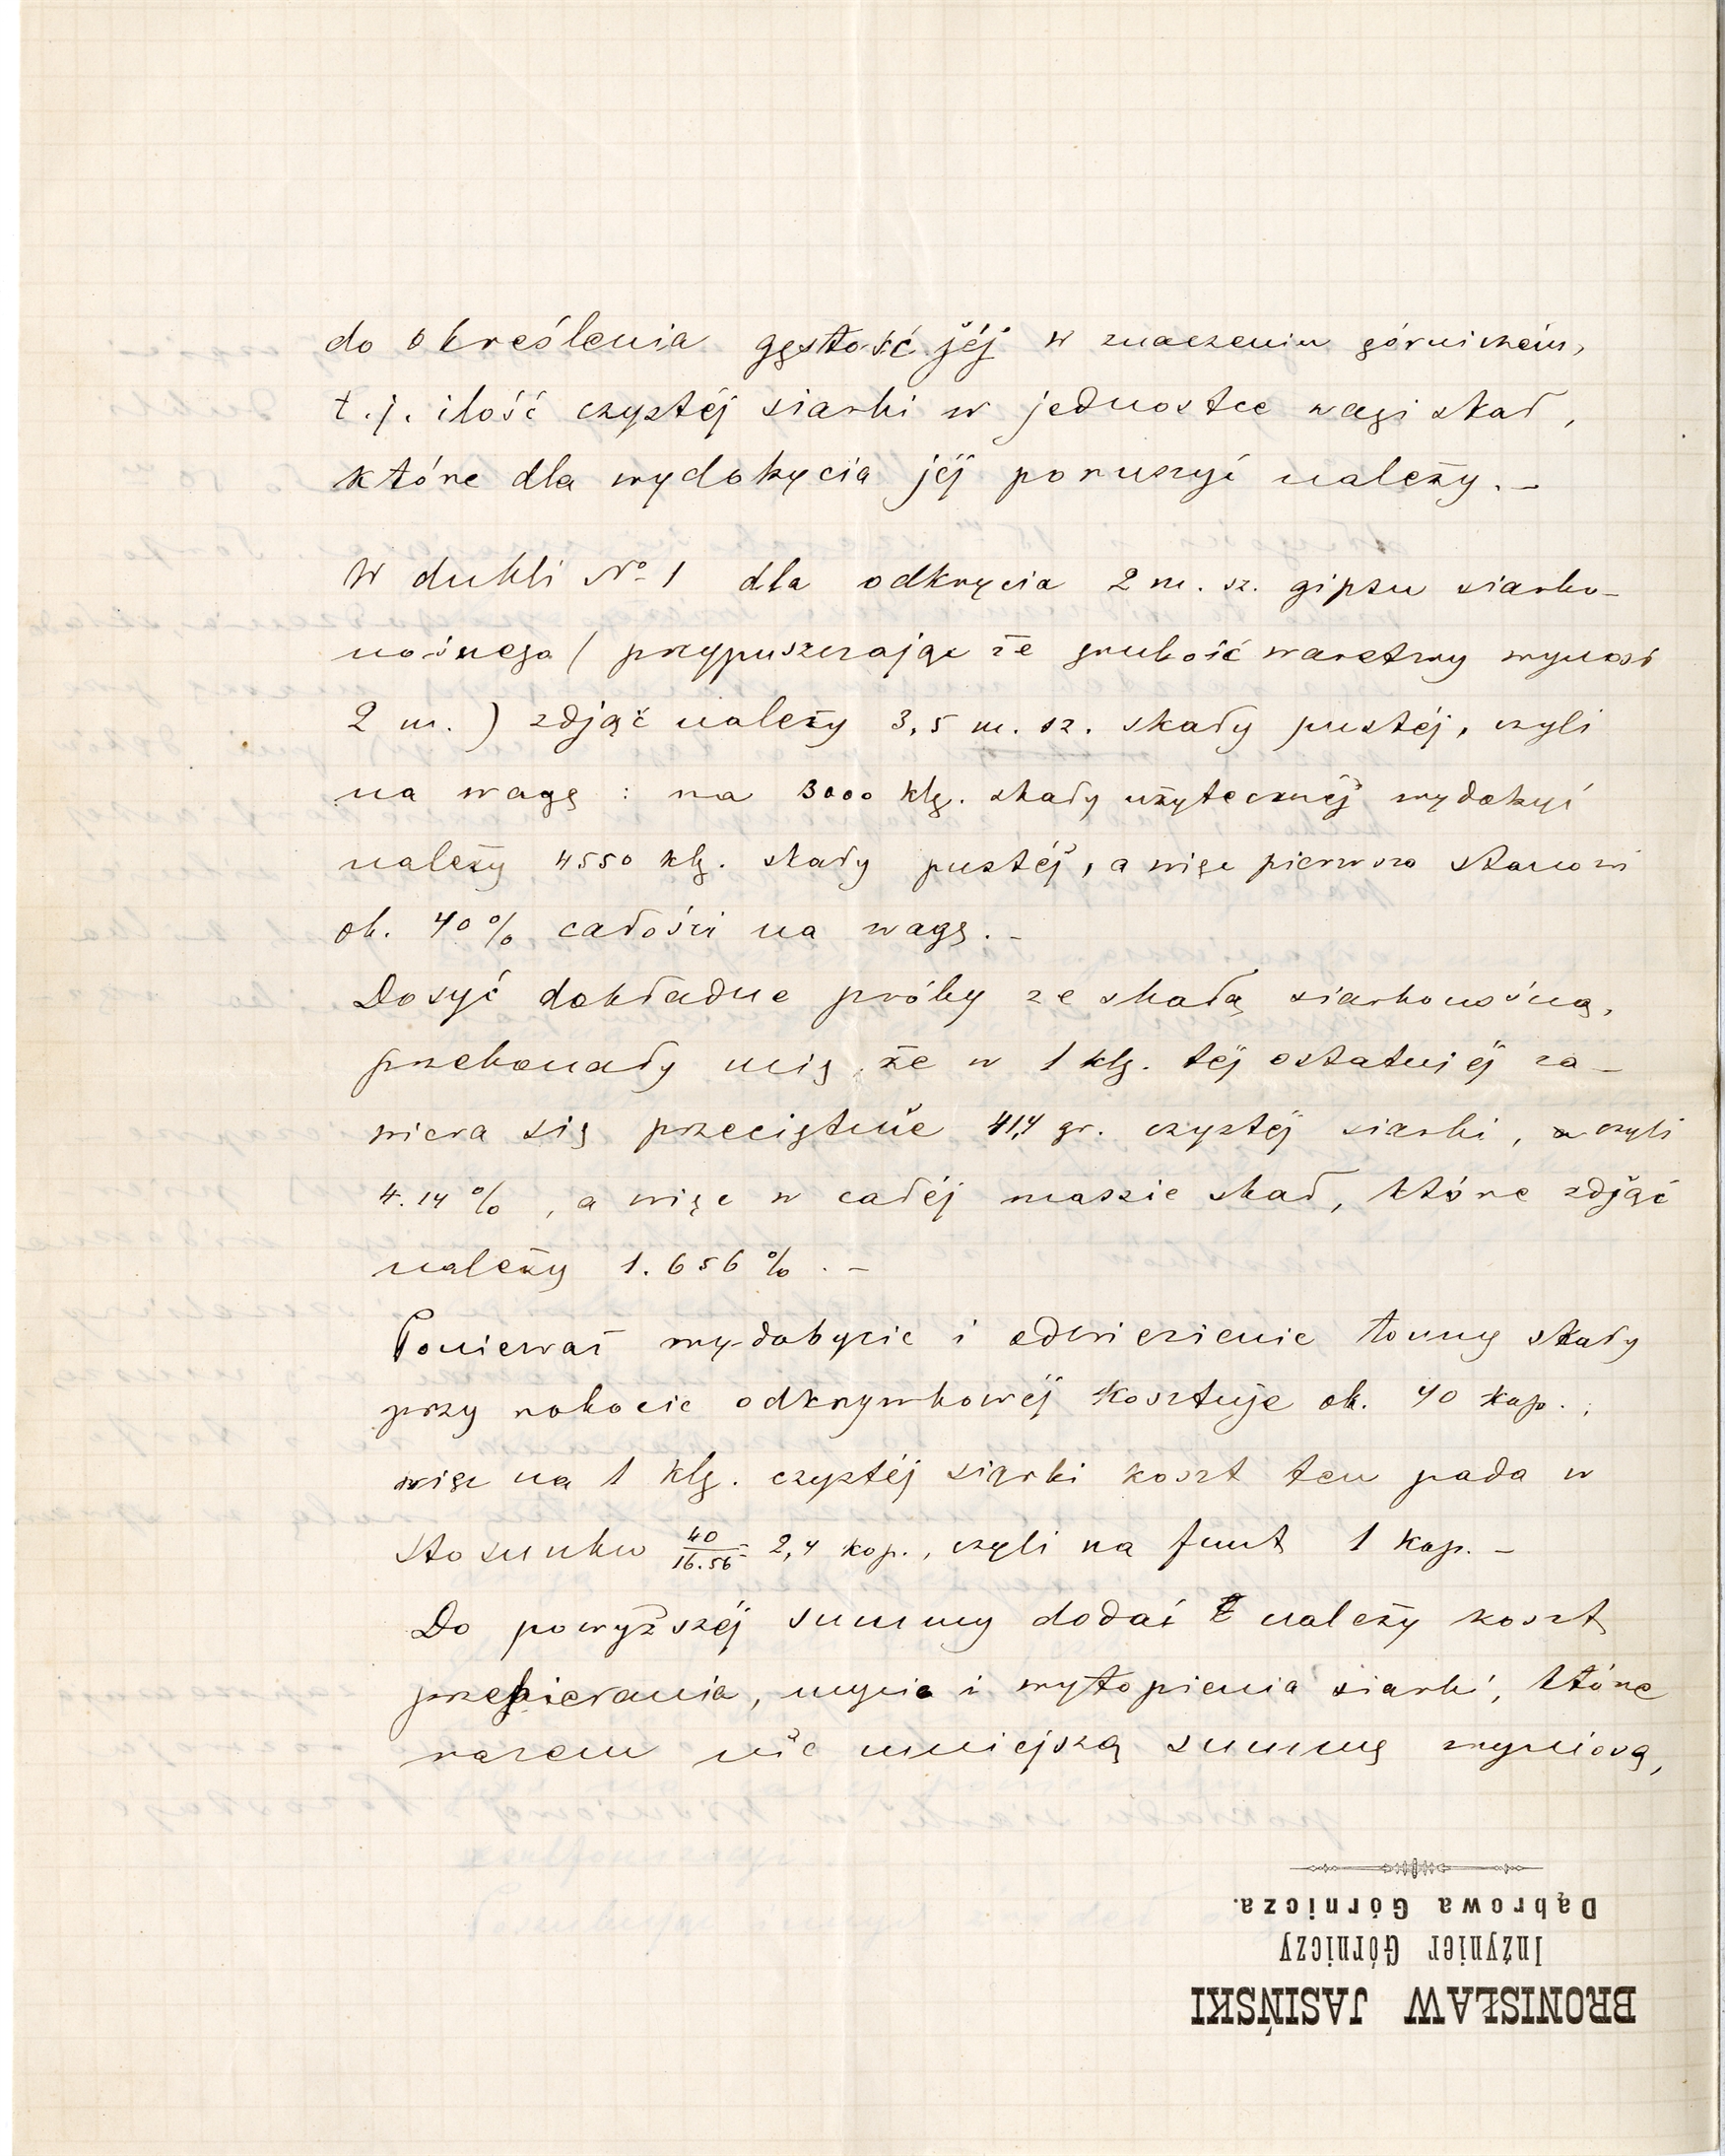 do określenia gęstość jéj w znaczeniu górniczém,
t.j. ilość czystéj siarki w jednostce wagi skał,
które dla wydobycia jéj poruszyć należy. –
W dukli № 1 dla odkrycia 2 m. sz. gipsu siarko-
nośnego (przypuszczając że grubość warstwy wynosi
2 m.) zdjąć należy 3,5 m. sz. skały pustéj, czyli
na wagę : na 3000 klg. skały użytecznéj wydobyć
należy 4550 klg. skały pustéj, a więc pierwsza stanowi
ok. 40% całości na wagę. –
Dosyć dokładne próby ze skałą siarkonośną,
przekonały mię że w 1 klg. téj ostatniéj za-
wiera się przeciętnie 41,4 gr. czystéj siarki, czyli
4.14%, a więc w całéj massie skał, które zdjąć
należy 1.656%. –
Ponieważ wydobycie i odwiezienie tonny skały
przy robocie odkrywkowéj kosztuje ok. 40 kop.;
więc na 1 klg. czystéj siarki koszt ten pada w
stosunku 40/16.56 = 2,4 kop., czyli na funt 1 kop. –
Do powyższéj summy dodać należy koszt
przebierania, mycia i wytopienia siarki, które
razem nie mniejszą summę wyniosą,
Dąbrowa Górnicza.
Inżynier Górniczy
BRONISŁAW JASIŃSKI